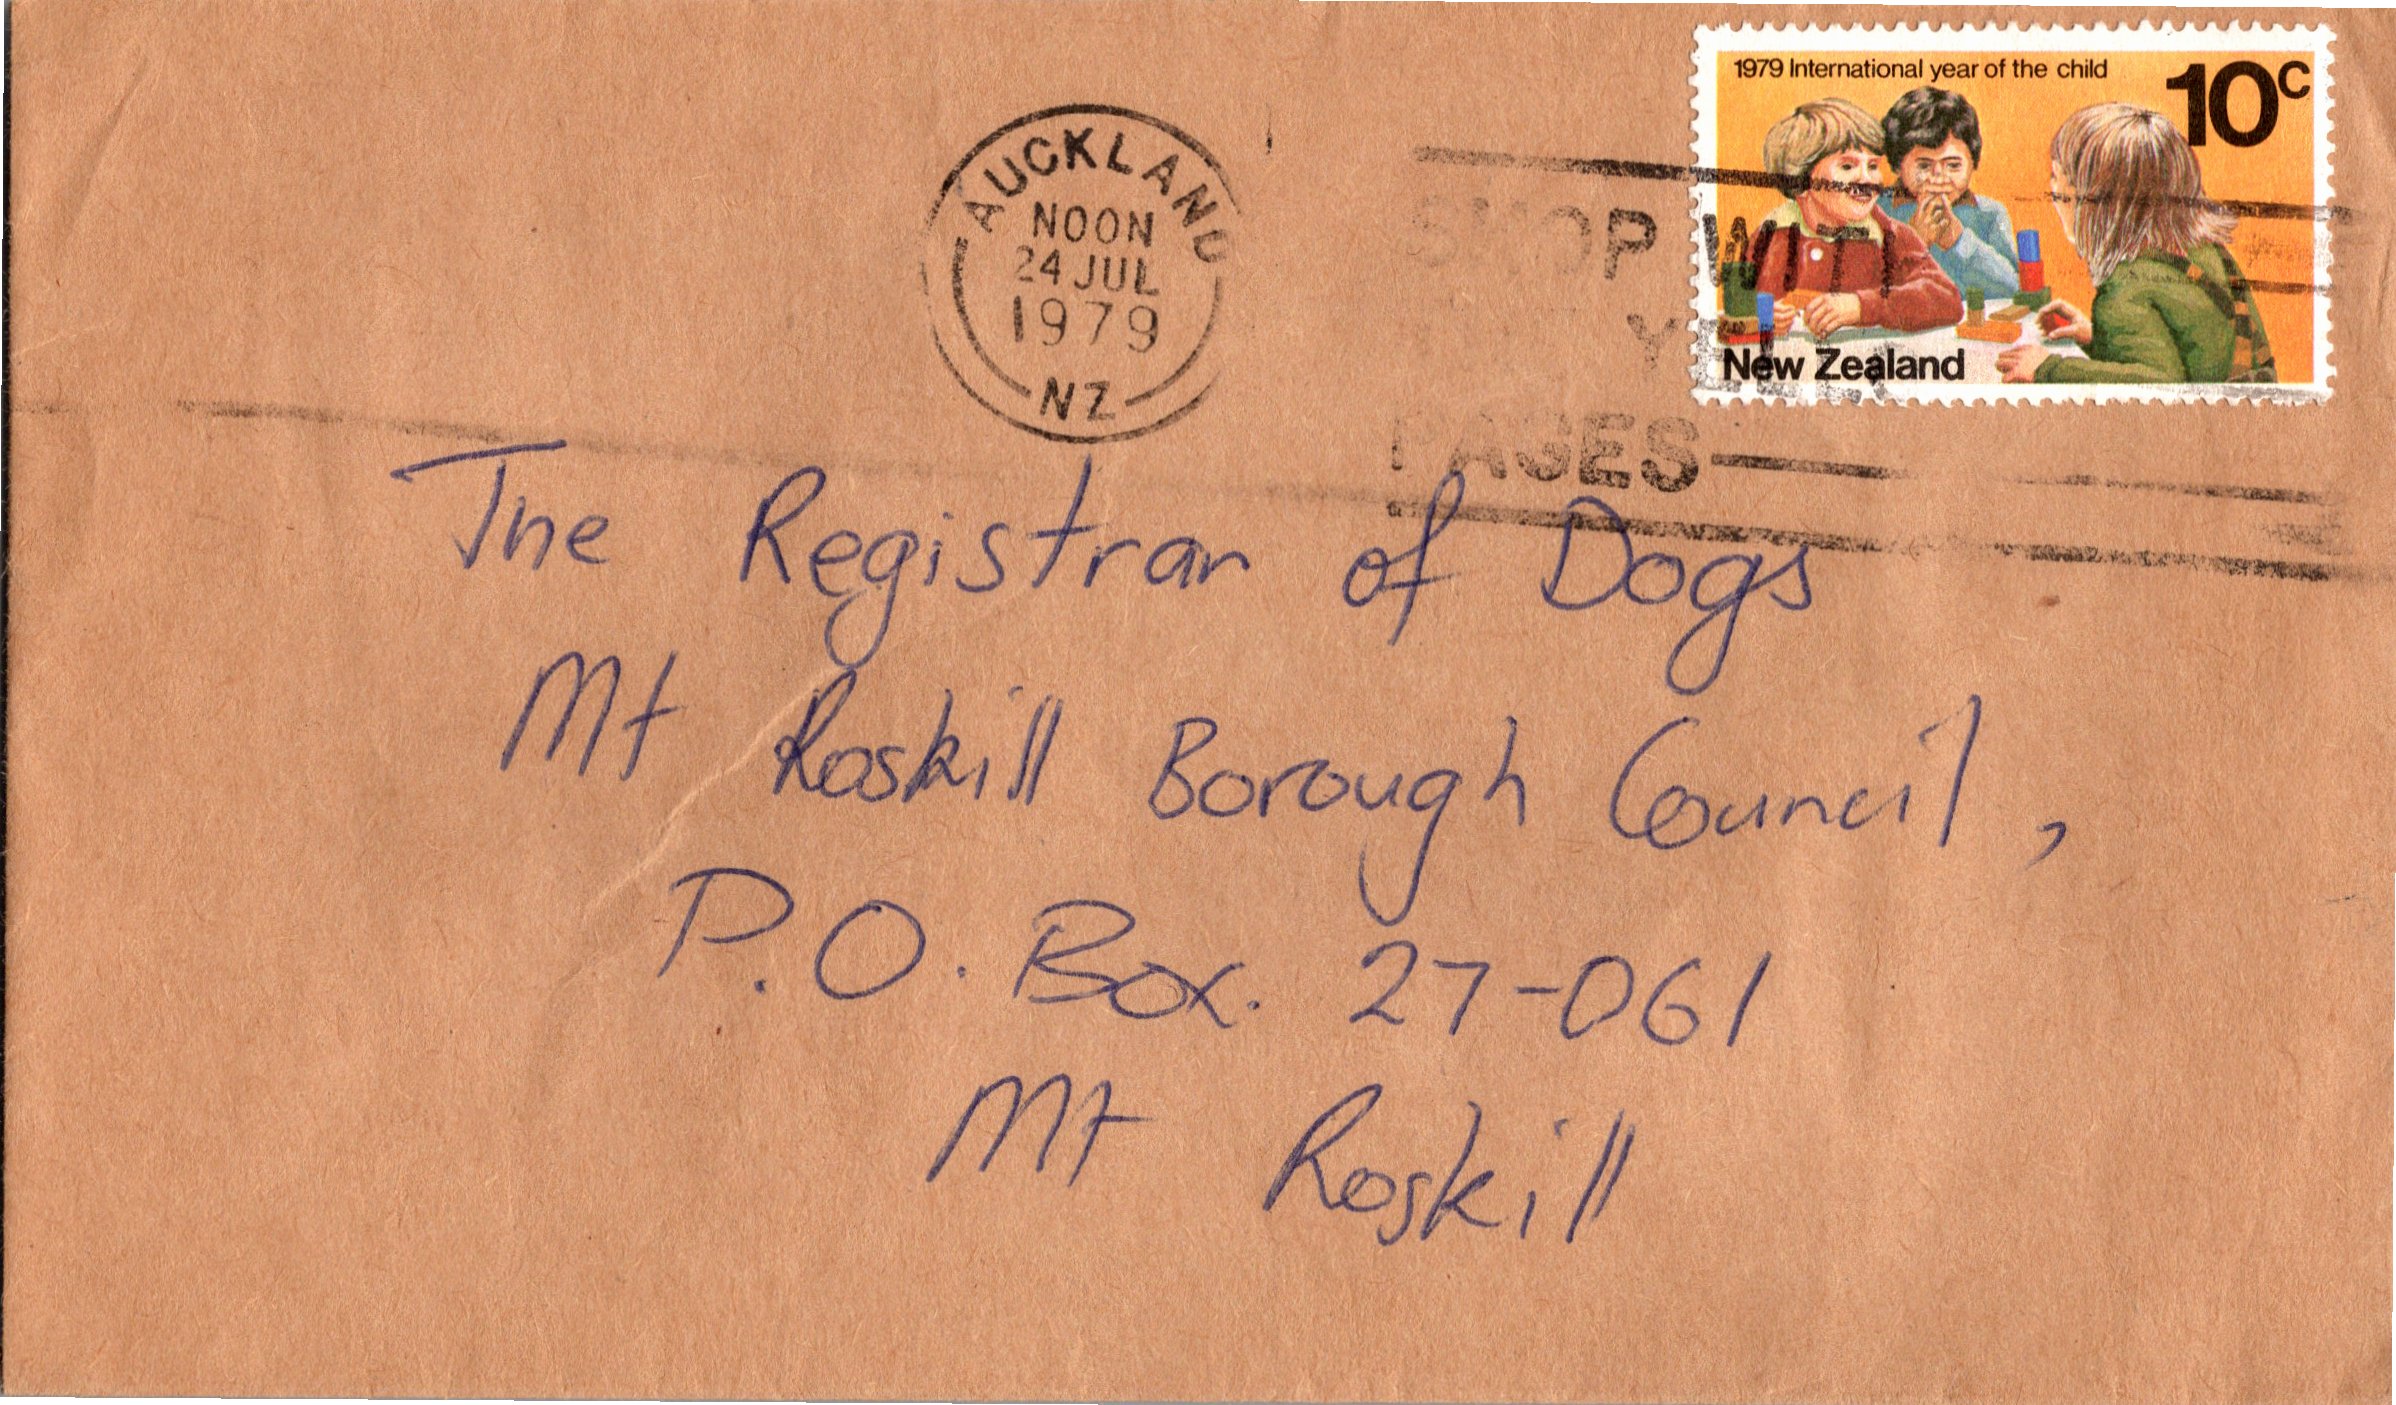 1979 International year of the child
10c
New Zealand
AUCKLAND
NOON
24 JUL
1979
NZ
SHOP WITH
PAGES
The Registrar of Dogs
Mt Roskill Borough Council,
P.O. Box. 27-061
Mt Roskill